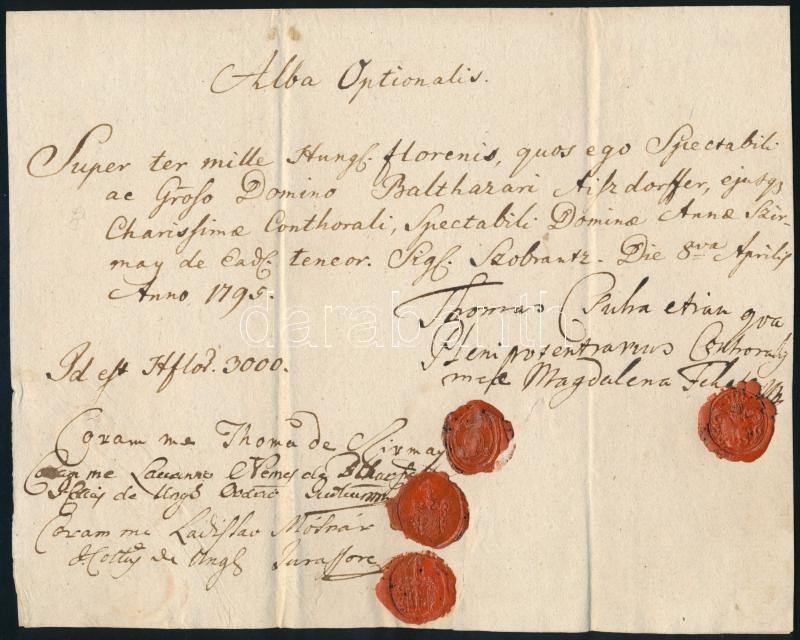 Alba Optionalis.
Super ter mille Hung. florenis, quos ego Spectabili
ac Groso Domino Balthazari Aiszdorffer, ejusq3
Charissimæ Conthorali, Spectabili Dominæ Annæ Szir-
may de Ead. teneor. Sig. Szobrantz. Die 8va Aprilis
Anno 1795.
Thomas Csuha etiam qua
Plenipotentiarius Conthoralis
meæ Magdalena
Id est Hflor. 3000.
Coram me Thoma de Szirmay
Coram me Nemes de
de Ungh
Coram me Ladislao Mólnár
I. Cottus de Ungh Jurassore
darabanth